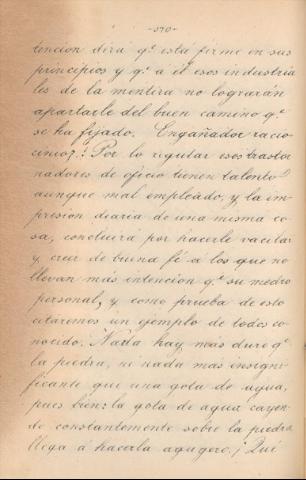 -570-
tencion dirá q.e está firme en sus
principios y q.e a él esos industria
les de la mentira no lograrán
apartarle del buen camino q.e
se ha fijado. Engañador racio
cinio? ! Por lo regular esos trastor
nadores de oficio tienen talento
aunque mal empleado, y la im-
presion diaria de una misma co
sa, concluirá por hacerle vacilar
y creer de buena fé á los que no
llevan más intencion q.e su medro
personal, y como prueba de esto
citáremos un ejemplo de todos co
nocido. Nada hay más duro q.e
la piedra, ni nada más insigni-
ficante que una gota de agua,
pues bien: la gota de agua cayen-
do constantemente sobre la piedra
llega á hacerla agugero. ¡ Qui